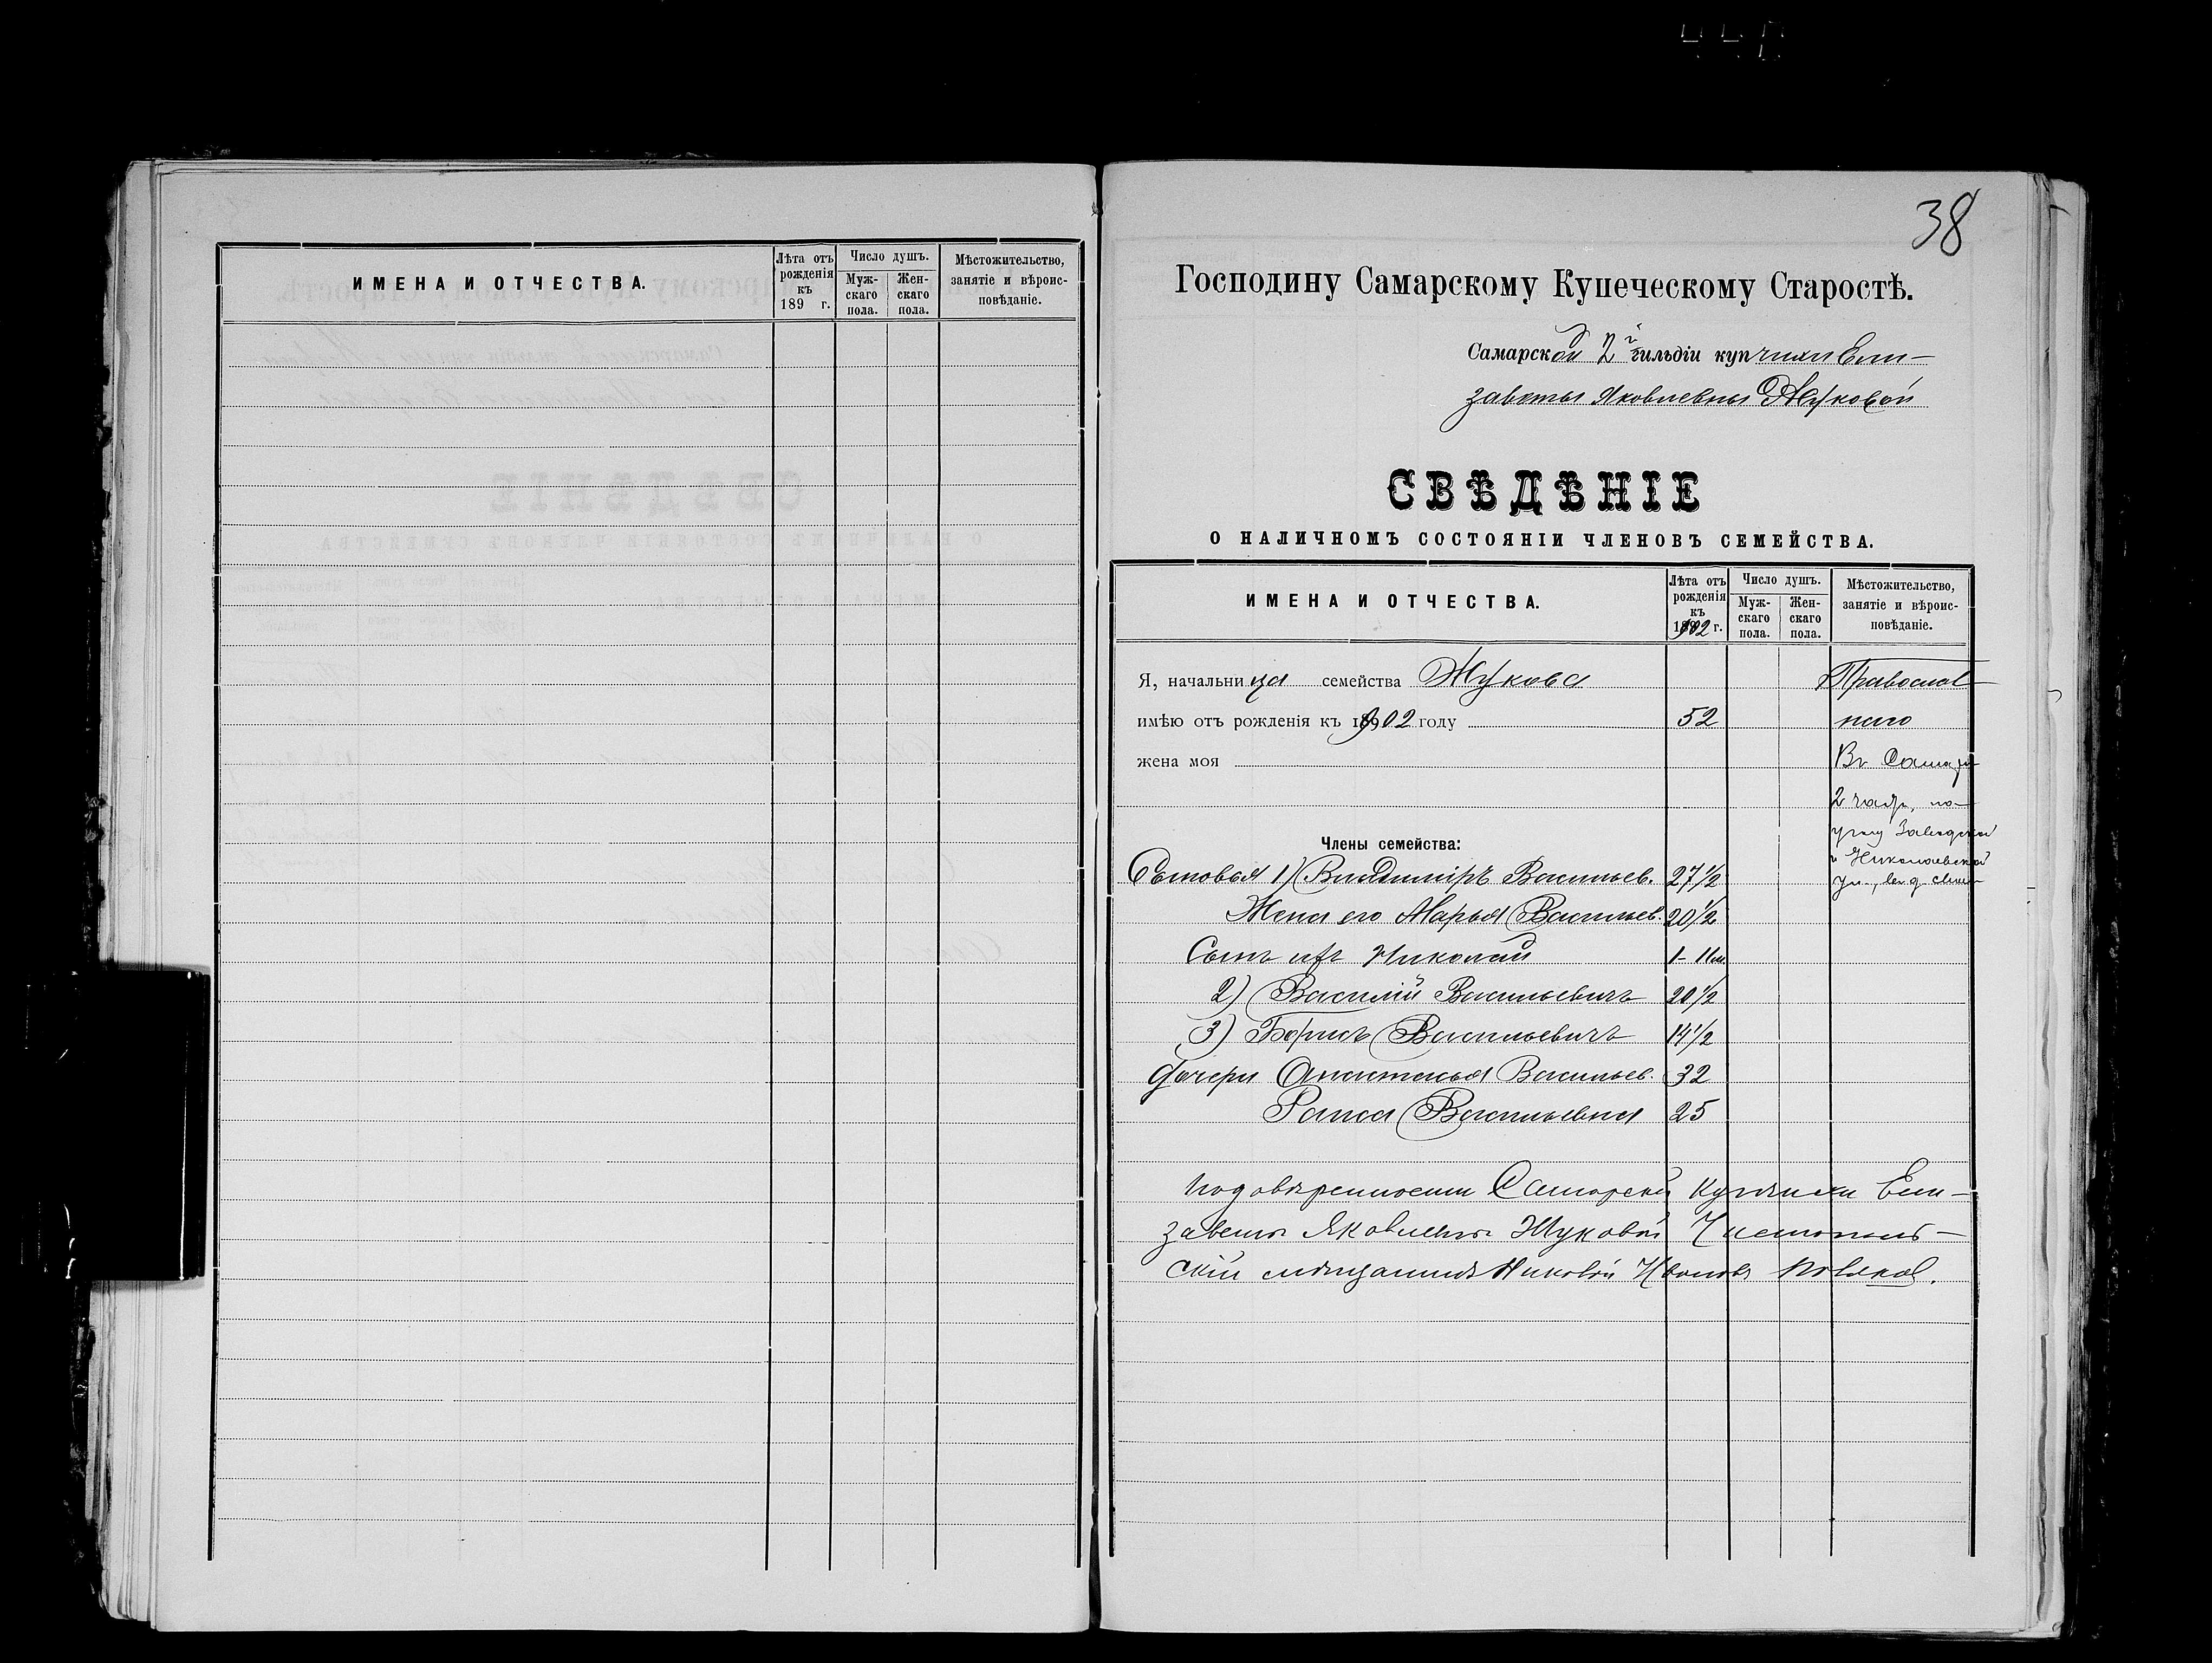 ИМЕНА И ОТЧЕСТВА.
Лѣта отъ рожденія къ 189 г.
Число душъ.
Мужскаго пола.
Женскаго пола.
Мѣстожительство, занятіе и вѣроисповѣданіе.
38
Господину Самарскому Купеческому Старостѣ.
Самарской 2й гильдіи купчихи Ели-
заветы Яковлевны Жуковой
СВѢДѢНІЕ
О НАЛИЧНОМЪ СОСТОЯНІИ ЧЛЕНОВЪ СЕМЕЙСТВА.
ИМЕНА И ОТЧЕСТВА.
Лѣта отъ
рожденія
къ
1902 г.
Число душъ.
Муж-
скаго
пола.
Жен-
скаго
пола.
Мѣстожительство,
занятіе и вѣроис-
повѣданіе.
Я, начальница семейства Жукова Православ-
имѣю отъ рожденія къ 1902 году 52 наго
жена моя Въ Самарѣ
2 часть, по
углу Заводской
Члены семейства:
и Николаевской
ул., въ д.
Сыновья 1) Владиміръ Васильев. 27 1/2
Жена его Марья Васильев. 20 1/2
Сынъ ихъ Николай 1- 11 м.
2) Василій Васильевичъ 20 1/2
3) Борисъ Васильевичъ 14 1/2
Дочери Анастасья Васильев. 32
Раиса Васильевна 25
По довѣренности Самарской Купчихи Ели-
заветы Яковлевны Жуковой Чистополь-
скій мѣщанинъ Николай Ивановъ